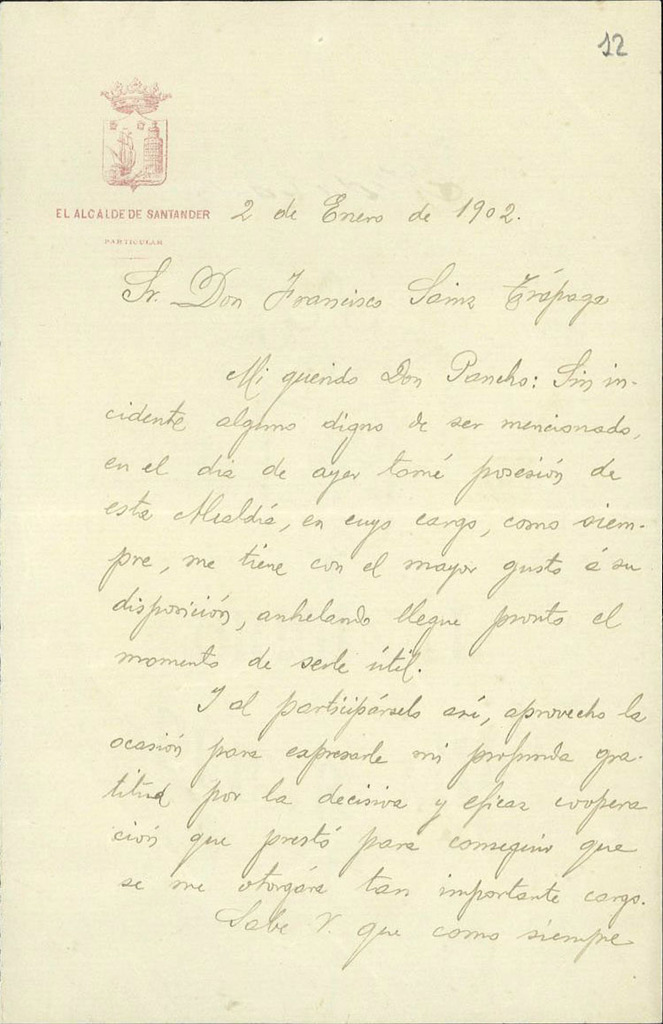 12
EL ALCALDE DE SANTANDER
PARTICULAR
2 de Enero de 1902.
Sr. Don Francisco Sainz Trápaga
Mi querido Don Pancho: Sin in-
cidente alguno digno de ser mencionado,
en el dia de ayer tomé posesión de
esta Alcaldía, en cuyo cargo, como siem-
pre, me tiene con el mayor gusto á su
disposición, anhelando llegue pronto el
momento de serle útil.
Y al participárselo así, aprovecho la
ocasión para expresarle mi profunda gra-
titud por la decisiva y eficaz coopera
ción que prestó para conseguir que
se me otorgára tan importante cargo.
Sabe V. que como siempre